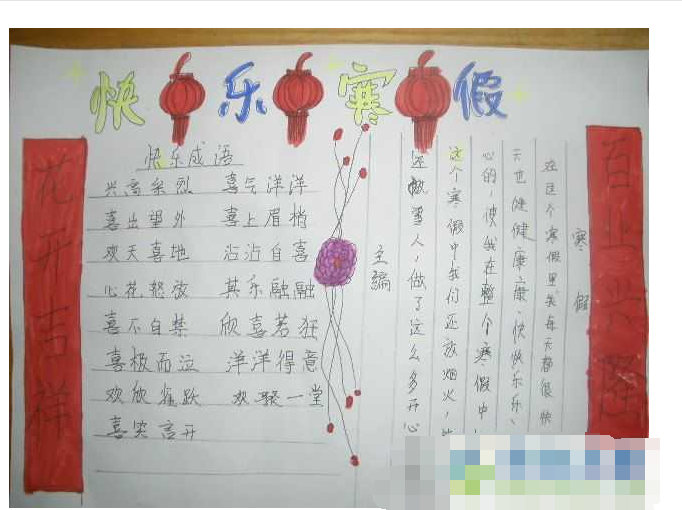 快乐寒假
花开吉祥
快乐成语
兴高采烈 喜气洋洋
喜出望外 喜上眉梢
欢天喜地 沾沾自喜
心花怒放 其乐融融
喜不自禁 欣喜若狂
喜极而泣 洋洋得意
欢欣雀跃 欢聚一堂
喜笑言开
寒假
在这个寒假里，我每天都很快
天也健健康康、快快乐乐、
心的，使我在整个寒假中
这个寒假中我们还放烟火，
还做雪人，做了这么多开心
主编
百
兴隆